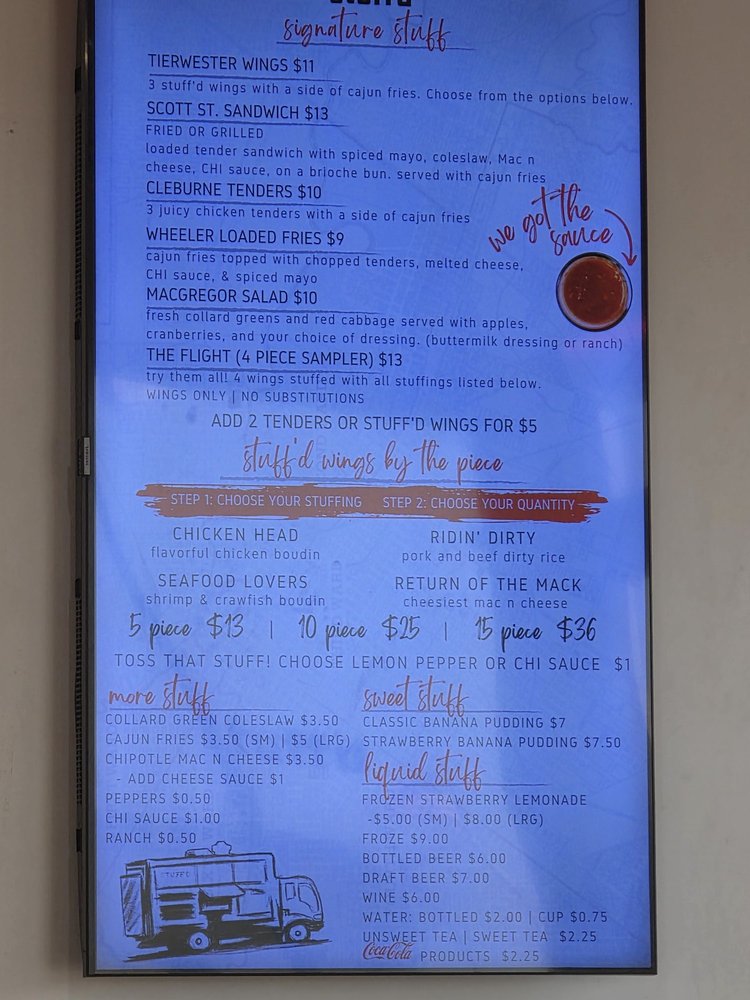 signature stuff
TIERWESTER WINGS $11
3 stuff'd wings with a side of cajun fries. Choose from the options below.
SCOTT ST. SANDWICH $13
FRIED OR GRILLED
loaded tender sandwich with spiced mayo, coleslaw, Mac n
cheese, CHI sauce, on a brioche bun. served with cajun fries
CLEBURNE TENDERS $10
3 juicy chicken tenders with a side of cajun fries
we got the
sauce
WHEELER LOADED FRIES $9
cajun fries topped with chopped tenders, melted cheese,
CHI sauce, & spiced mayo
MACGREGOR SALAD $10
fresh collard greens and red cabbage served with apples,
cranberries, and your choice of dressing. (buttermilk dressing or ranch)
THE FLIGHT (4 PIECE SAMPLER) $13
try them all! 4 wings stuffed with all stuffings listed below.
WINGS ONLY | NO SUBSTITUTIONS
ADD 2 TENDERS OR STUFF'D WINGS FOR $5
stuff'd wings by the piece
STEP 1: CHOOSE YOUR STUFFING STEP 2: CHOOSE YOUR QUANTITY
CHICKEN HEAD
flavorful chicken boudin
RIDIN' DIRTY
pork and beef dirty rice
SEAFOOD LOVERS
shrimp & crawfish boudin
RETURN OF THE MACK
cheesiest mac n cheese
5 piece $13 | 10 piece $25 | 15 piece $36
TOSS THAT STUFF! CHOOSE LEMON PEPPER OR CHI SAUCE $1
more stuff
COLLARD GREEN COLESLAW $3.50
CAJUN FRIES $3.50 (SM) | $5 (LRG)
CHIPOTLE MAC N CHEESE $3.50
- ADD CHEESE SAUCE $1
PEPPERS $0.50
CHI SAUCE $1.00
RANCH $0.50
sweet stuff
CLASSIC BANANA PUDDING $7
STRAWBERRY BANANA PUDDING $7.50
liquid stuff
FROZEN STRAWBERRY LEMONADE
-$5.00 (SM) | $8.00 (LRG)
FROZE $9.00
BOTTLED BEER $6.00
DRAFT BEER $7.00
WINE $6.00
WATER: BOTTLED $2.00 | CUP $0.75
UNSWEET TEA | SWEET TEA $2.25
Coca-Cola PRODUCTS $2.25